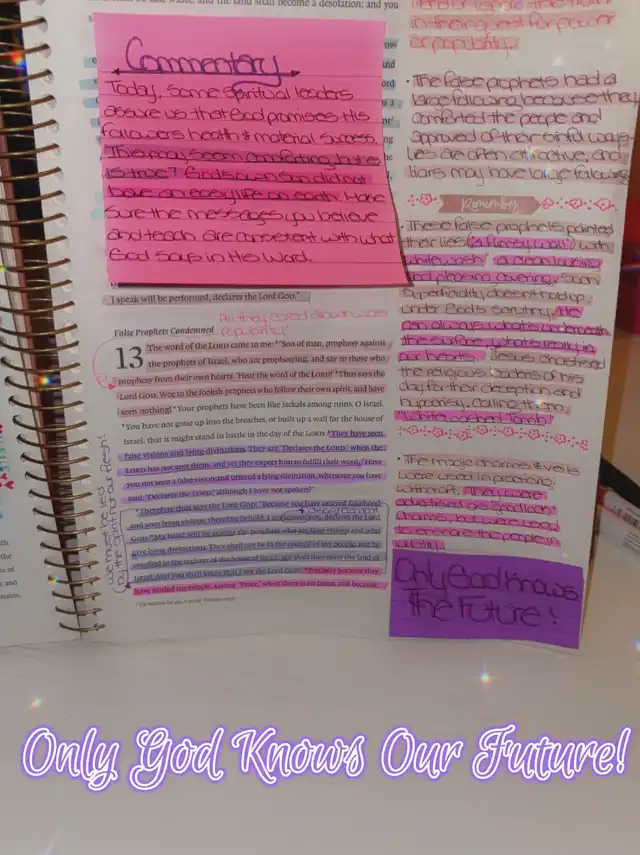 and the land shall become a desolation; and you
Commentary
Today, some spiritual leaders
assure us that God promises His
followers health & material success.
This may seem comforting, but is
is true? God's own son did not
have an easy life on earth. Make
sure the messages you believe
and teach are consistent with what
God says in His Word.
I speak will be performed, declares the Lord GOD."
popularity
False Prophets Condemned
13 The word of the LORD came to me: "Son of man, prophesy against
the prophets of Israel, who are prophesying, and say to those who
prophesy from their own hearts: 'Hear the word of the LORD!' Thus says the
Lord GOD, Woe to the foolish prophets who follow their own spirit, and have
seen nothing! Your prophets have been like jackals among ruins, O Israel.
You have not gone up into the breaches, or built up a wall for the house of
Israel, that it might stand in battle in the day of the LORD. They have seen
false visions and lying divinations. They say, 'Declares the LORD,' when the
LORD has not sent them, and yet they expect him to fulfill their word. Have
you not seen a false vision and uttered a lying divination, whenever you have
said, 'Declares the LORD,' although I have not spoken?"
Therefore thus says the Lord GOD: "Because you have uttered falsehood
and seen lying visions, therefore behold, I am against you, declares the Lord
GOD. My hand will be against the prophets who see false visions and who
give lying divinations. They shall not be in the council of my people, nor be
enrolled in the register of the house of Israel, nor shall they enter the land of
Israel. And you shall know that I am the Lord GOD. Precisely because they
have misled my people, saying, 'Peace,' when there is no peace, and because,
we must be led
by the spirit not our flesh!
or popularity.
• The false prophets had a
large following because they
comforted the people and
approved of their sinful ways
lies are often attractive, and
liars may have large following
Remember
• These false prophets painted
their lies (a flimsy wall) with
whitewash a clean looking
God pleasing covering. Such
superficiality doesn't hold up
under God's scrutiny. He
can always what's underneath
the surface, what's really in
our hearts. Jesus chastised
the religious leaders of his
day for their deception and
hypocrisy, calling them
"White washed Tomb"
• The magic charms & veils
were used in practicing
witchcraft. They were
advertised as good luck
charms, but were used
to ensnare the people in
idolatry
Only God knows
The Future!
Only God Knows Our Future!